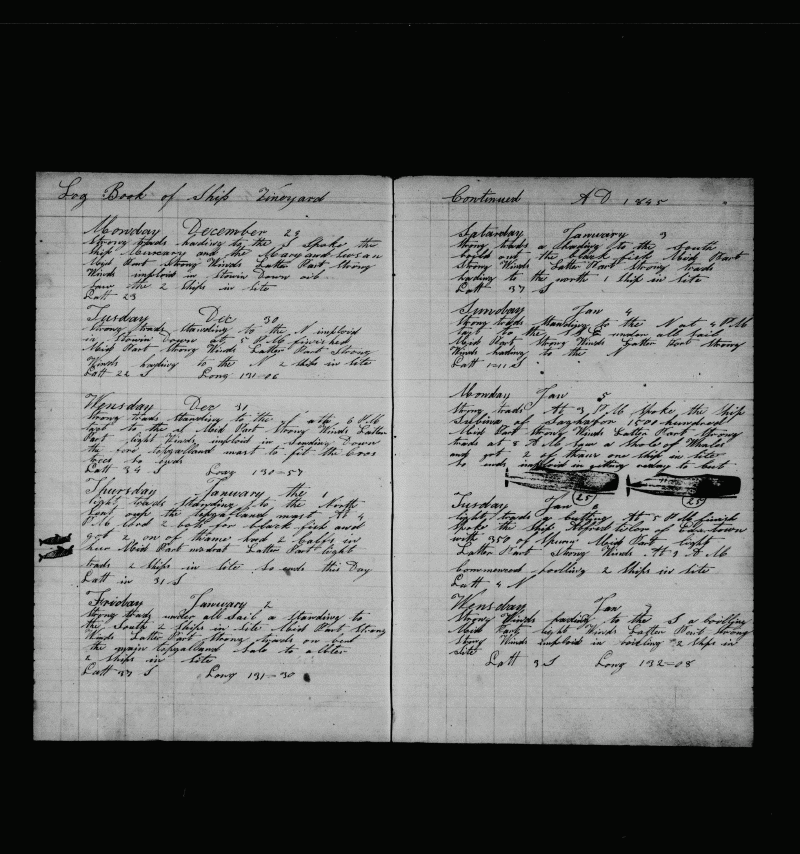 Log Book of Ship Vineyard
Monday December 23
Strong trads hading to the S Spoke the
Ship Mercary and the Mary and Susan
Mid Part Strong Winds Latter Part Strong
Winds imploid in Stowin Down oil
Saw the 2 Ships in Site
Latt 23
Tusday Dec 30
Strong trads Standing to the N imploid
in Stowin Down at 5 P M finished
Mid Part Strong Winds Latter Part Strong
Winds hading to the N 2 ships in Site
Latt 22 S Long 131=06
Wensday Dec 31
Strong trads Standing to the at 6 P M
to the S Mid Part Strong Winds Latter
Part light Winds imploid in Sending Down
the fore topgalland mast to fit the Cros
trees So Ends
Latt 34 S Long 130=57
Thursday Januwary the 1
light trads Standing to the North
Sent ough the topgalland mast At 4
P M Lord 2 botts for black fish and
got 2 on of thame had 2 balls in
hur Mid Part Latter Part light
trads 2 Ships in Site So ends this Day
Latt in 31 S
Friday Januwary 2
Strong trads under all Sail a Standing to
the South 2 Ships in Site Mid Part Strong
Winds Latter Part Strong trads on bend
the main topgalland Sale to alter
2 Ships in Site
Latt 33 S Long 131=30
Continued A D 1845
Saturday Januwary 3
Strong trads a hading to the South
boiled out the black fish Mid Part
Strong Winds Latter Part Strong trads
hading to the north 1 Ship in Site
Latt 37 S
Sunday Jan 4
Strong trads Standing to the N at 4 P M
to the S E under all Sail
Mid Part Strong Winds Latter Part Strong
Winds hading to the N
Latt S
Monday Jan 5
Strong trads At 3 P M Spoke the Ship
Sabina of Sagharbor 1500 hundred
Mid Part Strong Winds Latter Part Strong
trads at 8 A M Saw a Shole of Whals
and got 2 of thaur one Ship in Site
So ends imploid in giting reday to Cut
(25) (25)
Tusday Jan 6
light trads a Cutting At 5 P M finish
Spoke the Ship of
with 350 of Spurm Mid Part light
Latter Part Strong Winds At 3 A M
Commenced boilling 2 Ships in Site
Latt 4 N
Wensday Jan 7
Strong Winds hading to the S a boilling
Mid Part light Winds Latter Part Strong
Strong Winds imploid in boiling 2 Ships in
Site
Latt 3 S Long 132=08